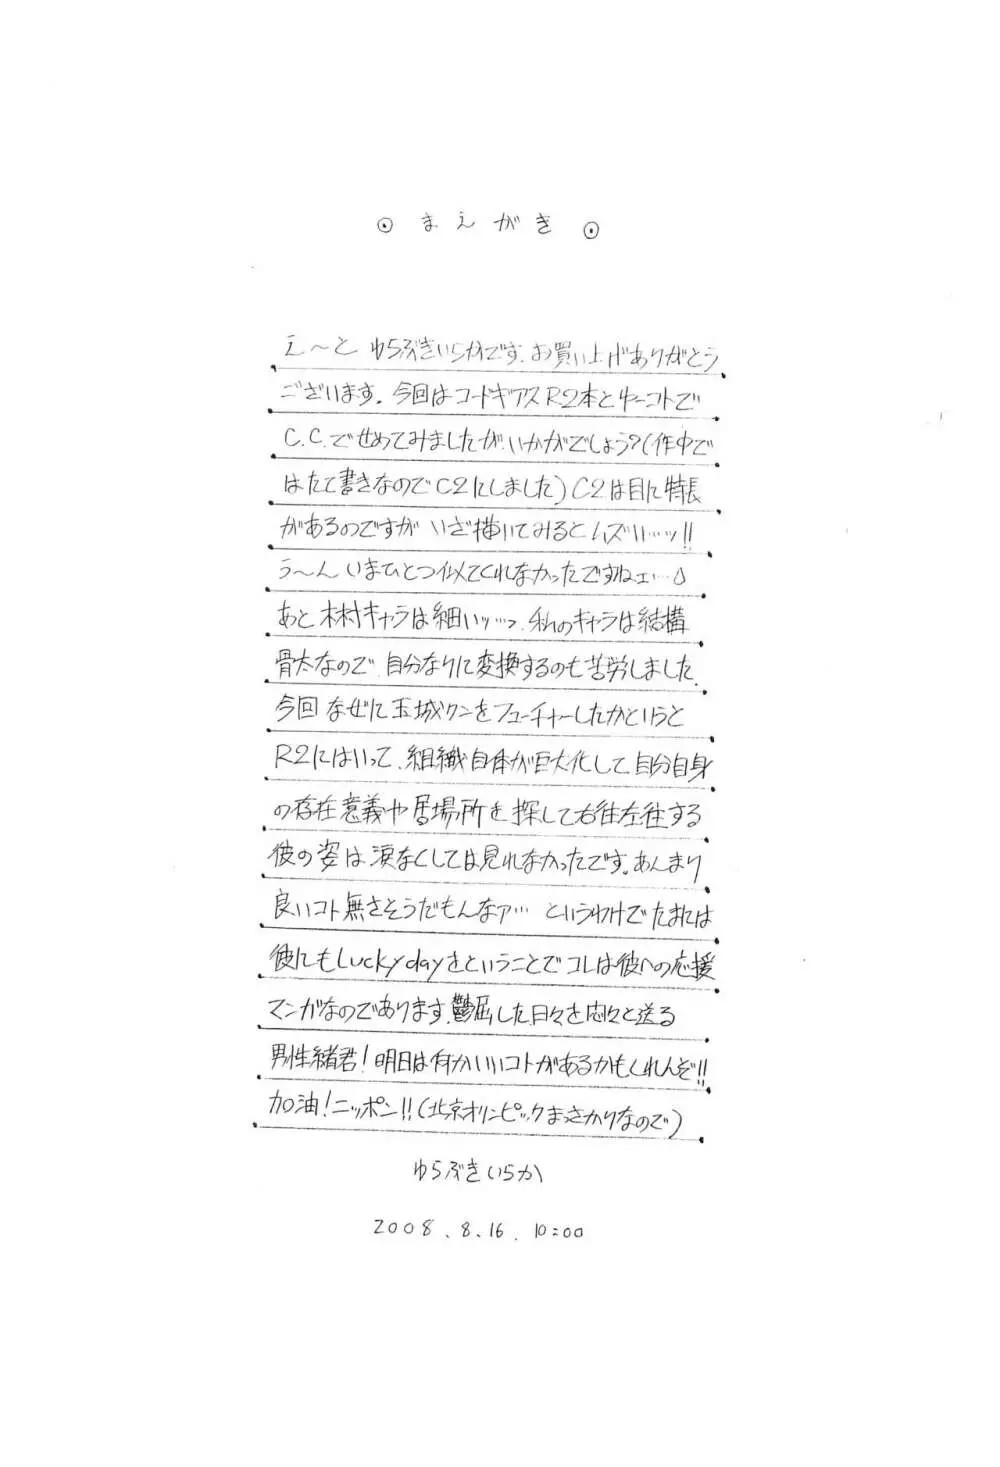 ⊙ まえがき ⊙
え〜と ゆらぶきいらかです。お買い上げありがとう
ございます。今回はコードギアスR2本とゆーコトで
C.C.でせめてみましたが、いかがでしょう?(作中で
はたて書きなのでC2にしました)C2は目に特長
があるのですが いざ描いてみるとムズいッ…ッ!!
う〜ん いまひとつ似てくれなかったですねェ…
あと 木村キャラは細いッ…っ、私のキャラは結構
骨太なので、自分なりに変換するのも苦労しました。
今回 なぜに玉城クンをフューチャーしたかというと
R2にはいって、組織自体が巨大化して自分自身
の存在意義や居場所を探して右往左往する
彼の姿は涙なくしては見れなかったです。あんまり
良いコト無さそうだもんなァ… というわけでたまには
彼にもLucky dayをということでコレは彼への応援
マンガなのであります。鬱屈した日々を悶々と送る
男性緒君!明日は何かいいコトがあるかもしれんぞ!!
加油!ニッポン!!(北京オリンピックまっさかりなので)
ゆらぶきいらか
2008.8.16. 10:00